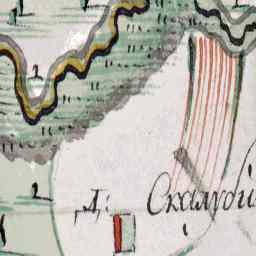 д: Скалуби